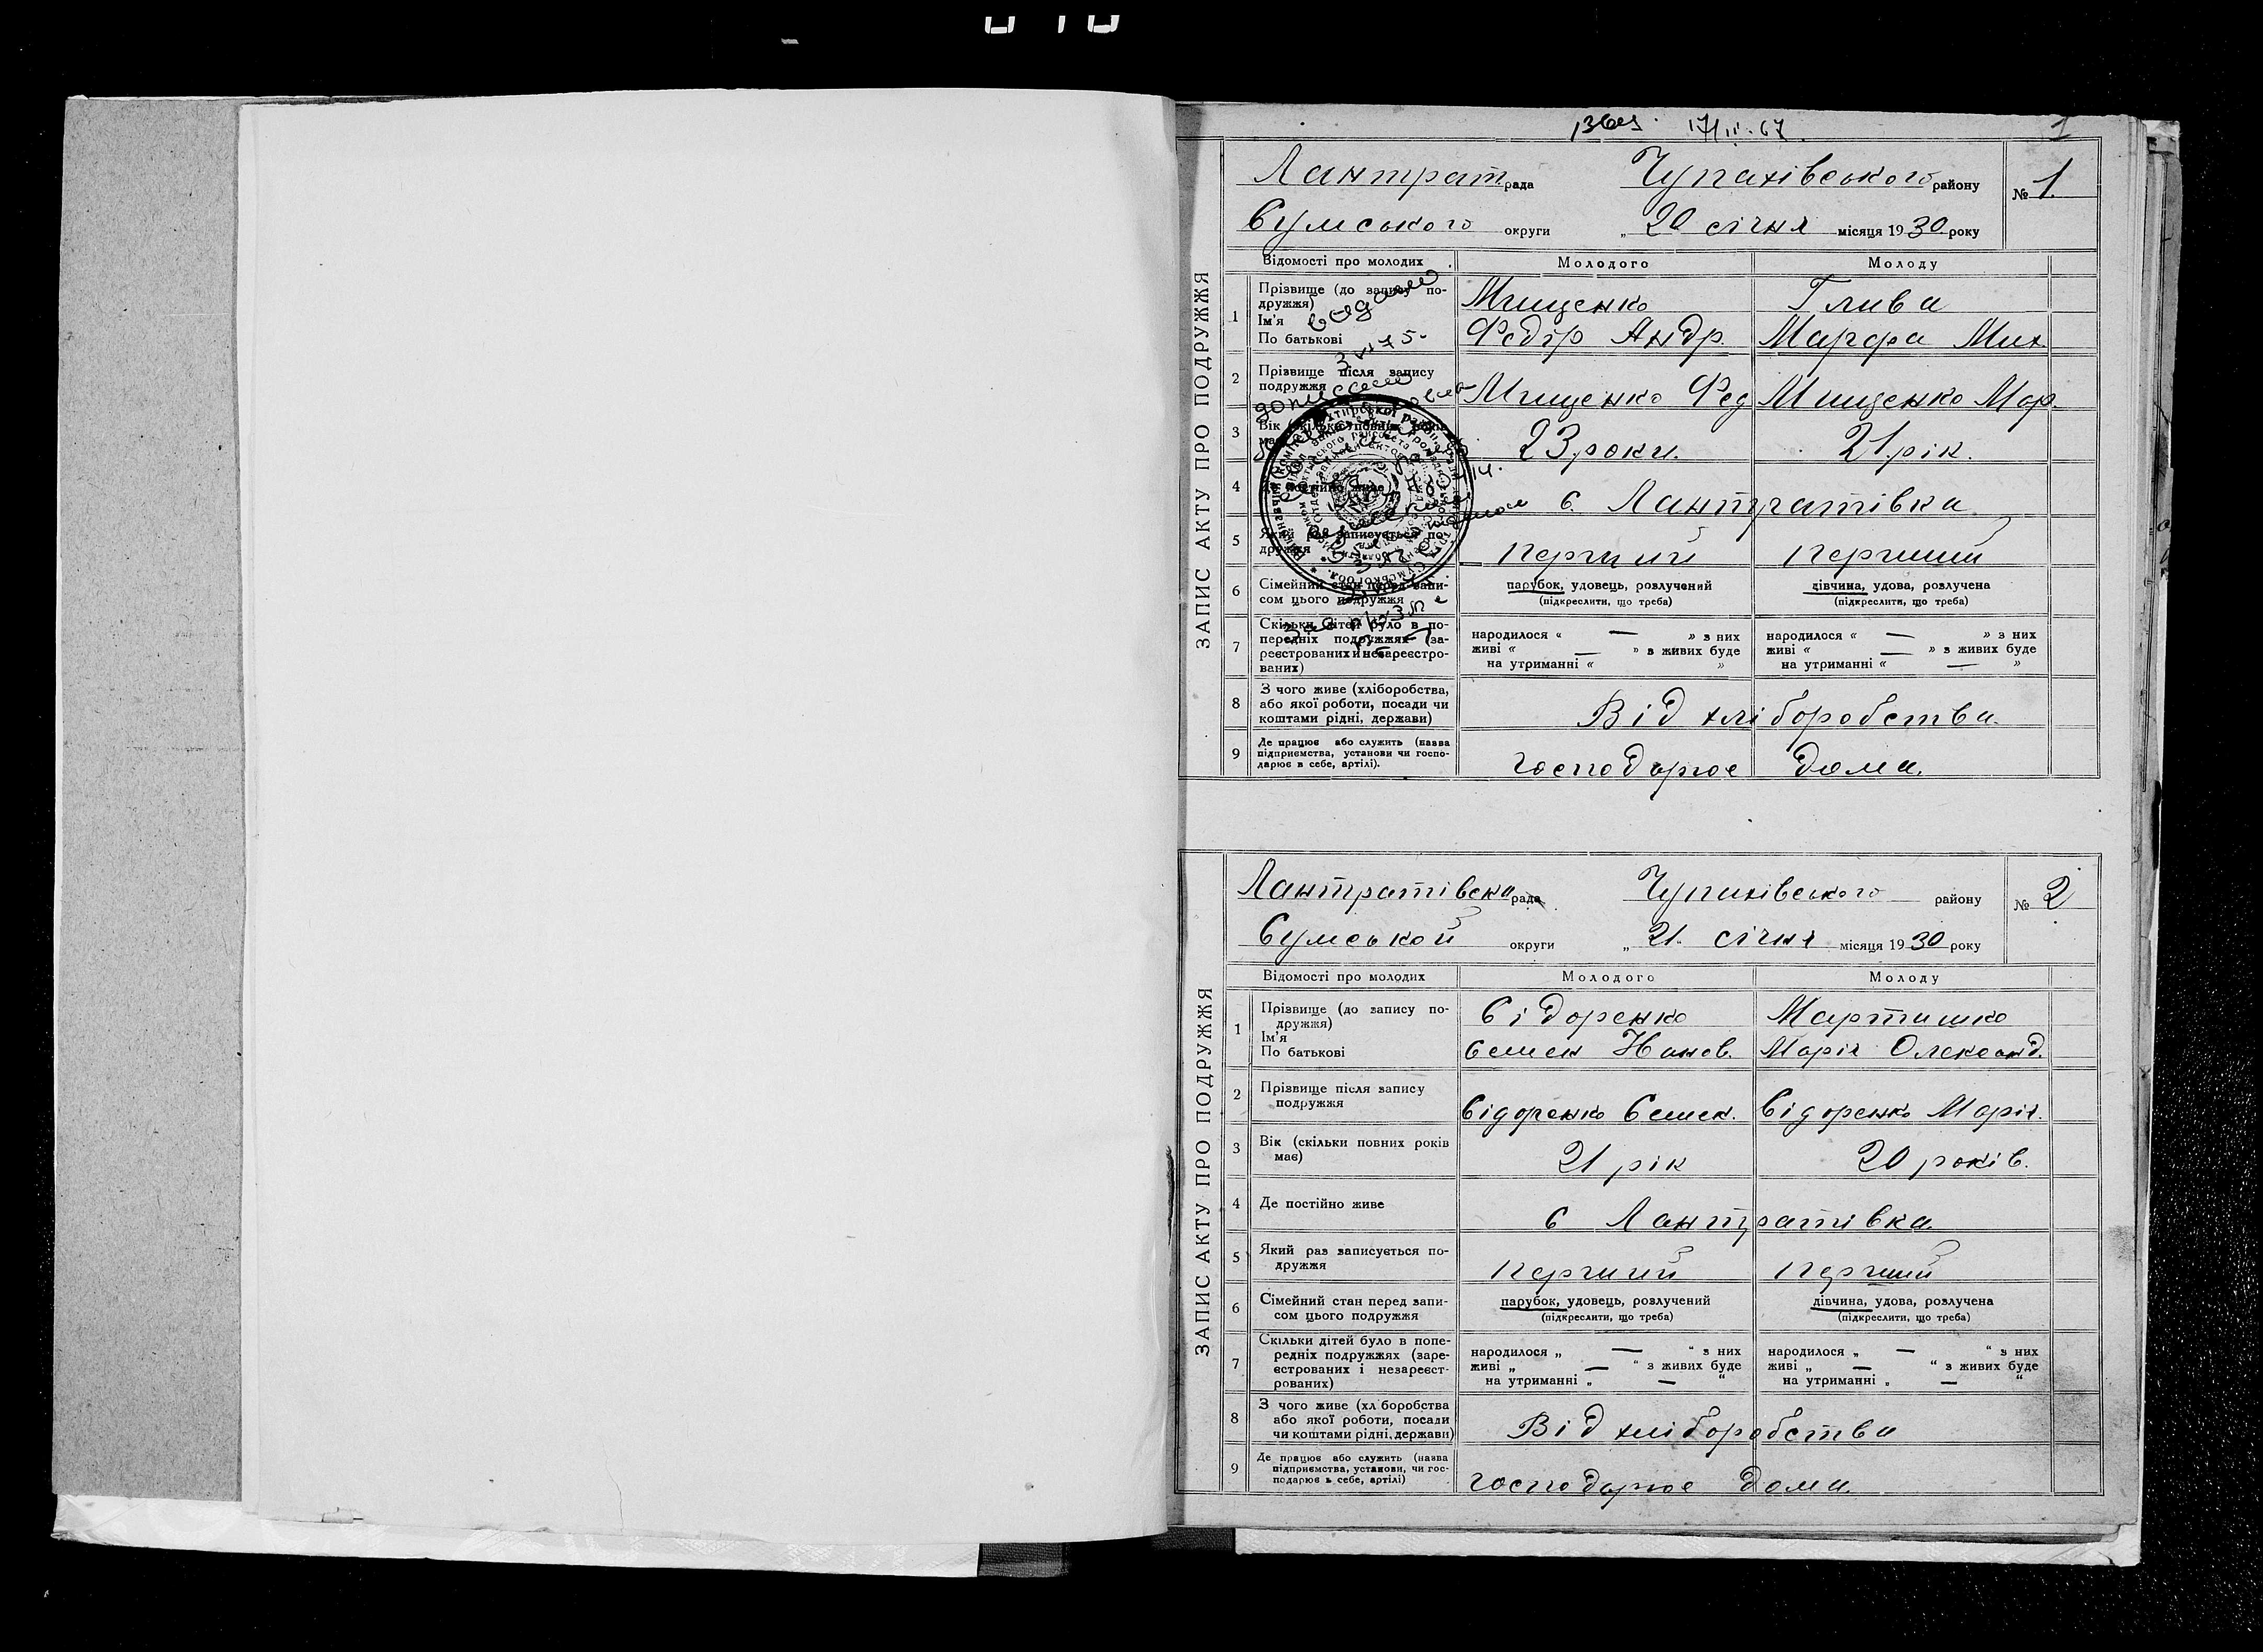 17/III-67.
1
ЗАПИС АКТУ ПРО ПОДРУЖЖЯ
Лантрат рада Чупахівського району № 1.
Сумського округи „ 20 січня місяця 1930 року
Відомості про молодих Молодого Молоду
1 Прізвище (до запису по-
дружжя) Мищенко Глива
Ім'я
По батькові Федір Андр. Марфа Мих.
видано
2 Прізвище після запису
подружжя Мищенко Фед Мищенко Мар.
3 23 роки. 21 рік.
4 Де постійно живе с Лантратівка
5 Який раз записується по-
дружжя перший перший
6 Сімейний стан перед запи-
сом цього подружжя парубок, удовець, розлучений дівчина, удова, розлучена
(підкреслити, що треба) (підкреслити, що треба)
7 Скільки дітей було в по-
передніх подружжях (за-
реєстрованих и незареєстро-
ваних)
народилося « — » з них народилося « — » з них
живі « — » з живих буде живі « — » з живих буде
на утриманні « » на утриманні « — »
8 З чого живе (хліборобства,
або якої роботи, посади чи
коштами рідні, держави) Від хліборобства.
9 Де працює або служить (назва
підприємства, установи чи госпо-
дарює в себе, артілі). господарює дома.
ЗАПИС АКТУ ПРО ПОДРУЖЖЯ
Лантратівска рада Чупахівського району № 2
Сумськой округи „ 21. січня місяця 1930 року
Відомості про молодих Молодого Молоду
1 Прізвище (до запису по-
дружжя) Сідоренко Мартишко
Ім'я
По батькові Семен Иванов. Марія Олександ.
2 Прізвище після запису
подружжя Сідоренко Семен. Сідоренко Марія.
3 Вік (скільки повних років
має) 21 рік 20 років.
4 Де постійно живе с Лантратівка
5 Який раз записується по-
дружжя перший перший
6 Сімейний стан перед запи-
сом цього подружжя парубок, удовець, розлучений дівчина, удова, розлучена
(підкреслити, що треба) (підкреслити, що треба)
7 Скільки дітей було в попе-
редніх подружжях (заре-
єстрованих і незареєст-
рованих)
народилося „ — “ з них народилося „ — “ з них
живі „ — “ з живих буде живі „ — “ з живих буде
на утриманні „ — “ на утриманні „ — “
8 З чого живе (хл боробства
або якої роботи, посади
чи коштами рідні, держави) Від хліборобства
9 Де працює або служить (назва
підприємства, установи, чи гос-
подарює в себе, артілі) господарює дома.